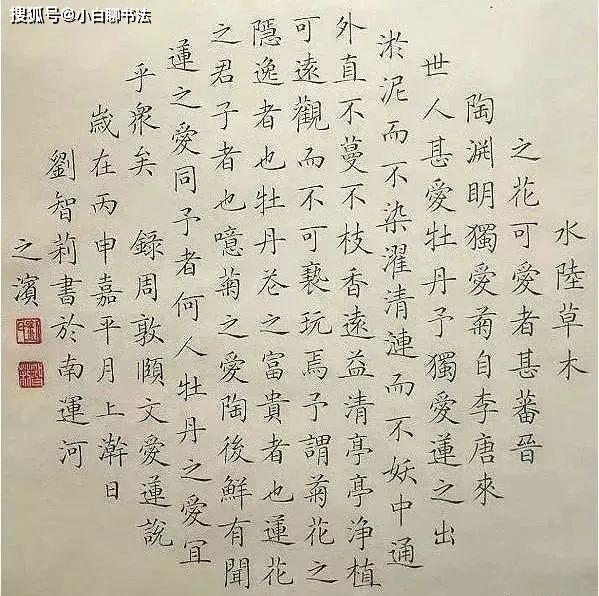 搜狐号@小白聊书法
水陸草木
之花可愛者甚蕃晉
陶渊明獨愛菊自李唐來
世人甚愛牡丹予獨愛蓮之出
淤泥而不染濯清漣而不妖中通
外直不蔓不枝香遠益清亭亭浄植
可遠觀而不可褻玩焉予謂菊花之
隱逸者也牡丹花之富貴者也蓮花
之君子者也噫菊之愛陶後鮮有聞
蓮之愛同予者何人牡丹之愛宜
乎衆矣 録周敦頤文愛蓮説
歲在丙申嘉平月上澣日
劉智莉書於南運河
之濱